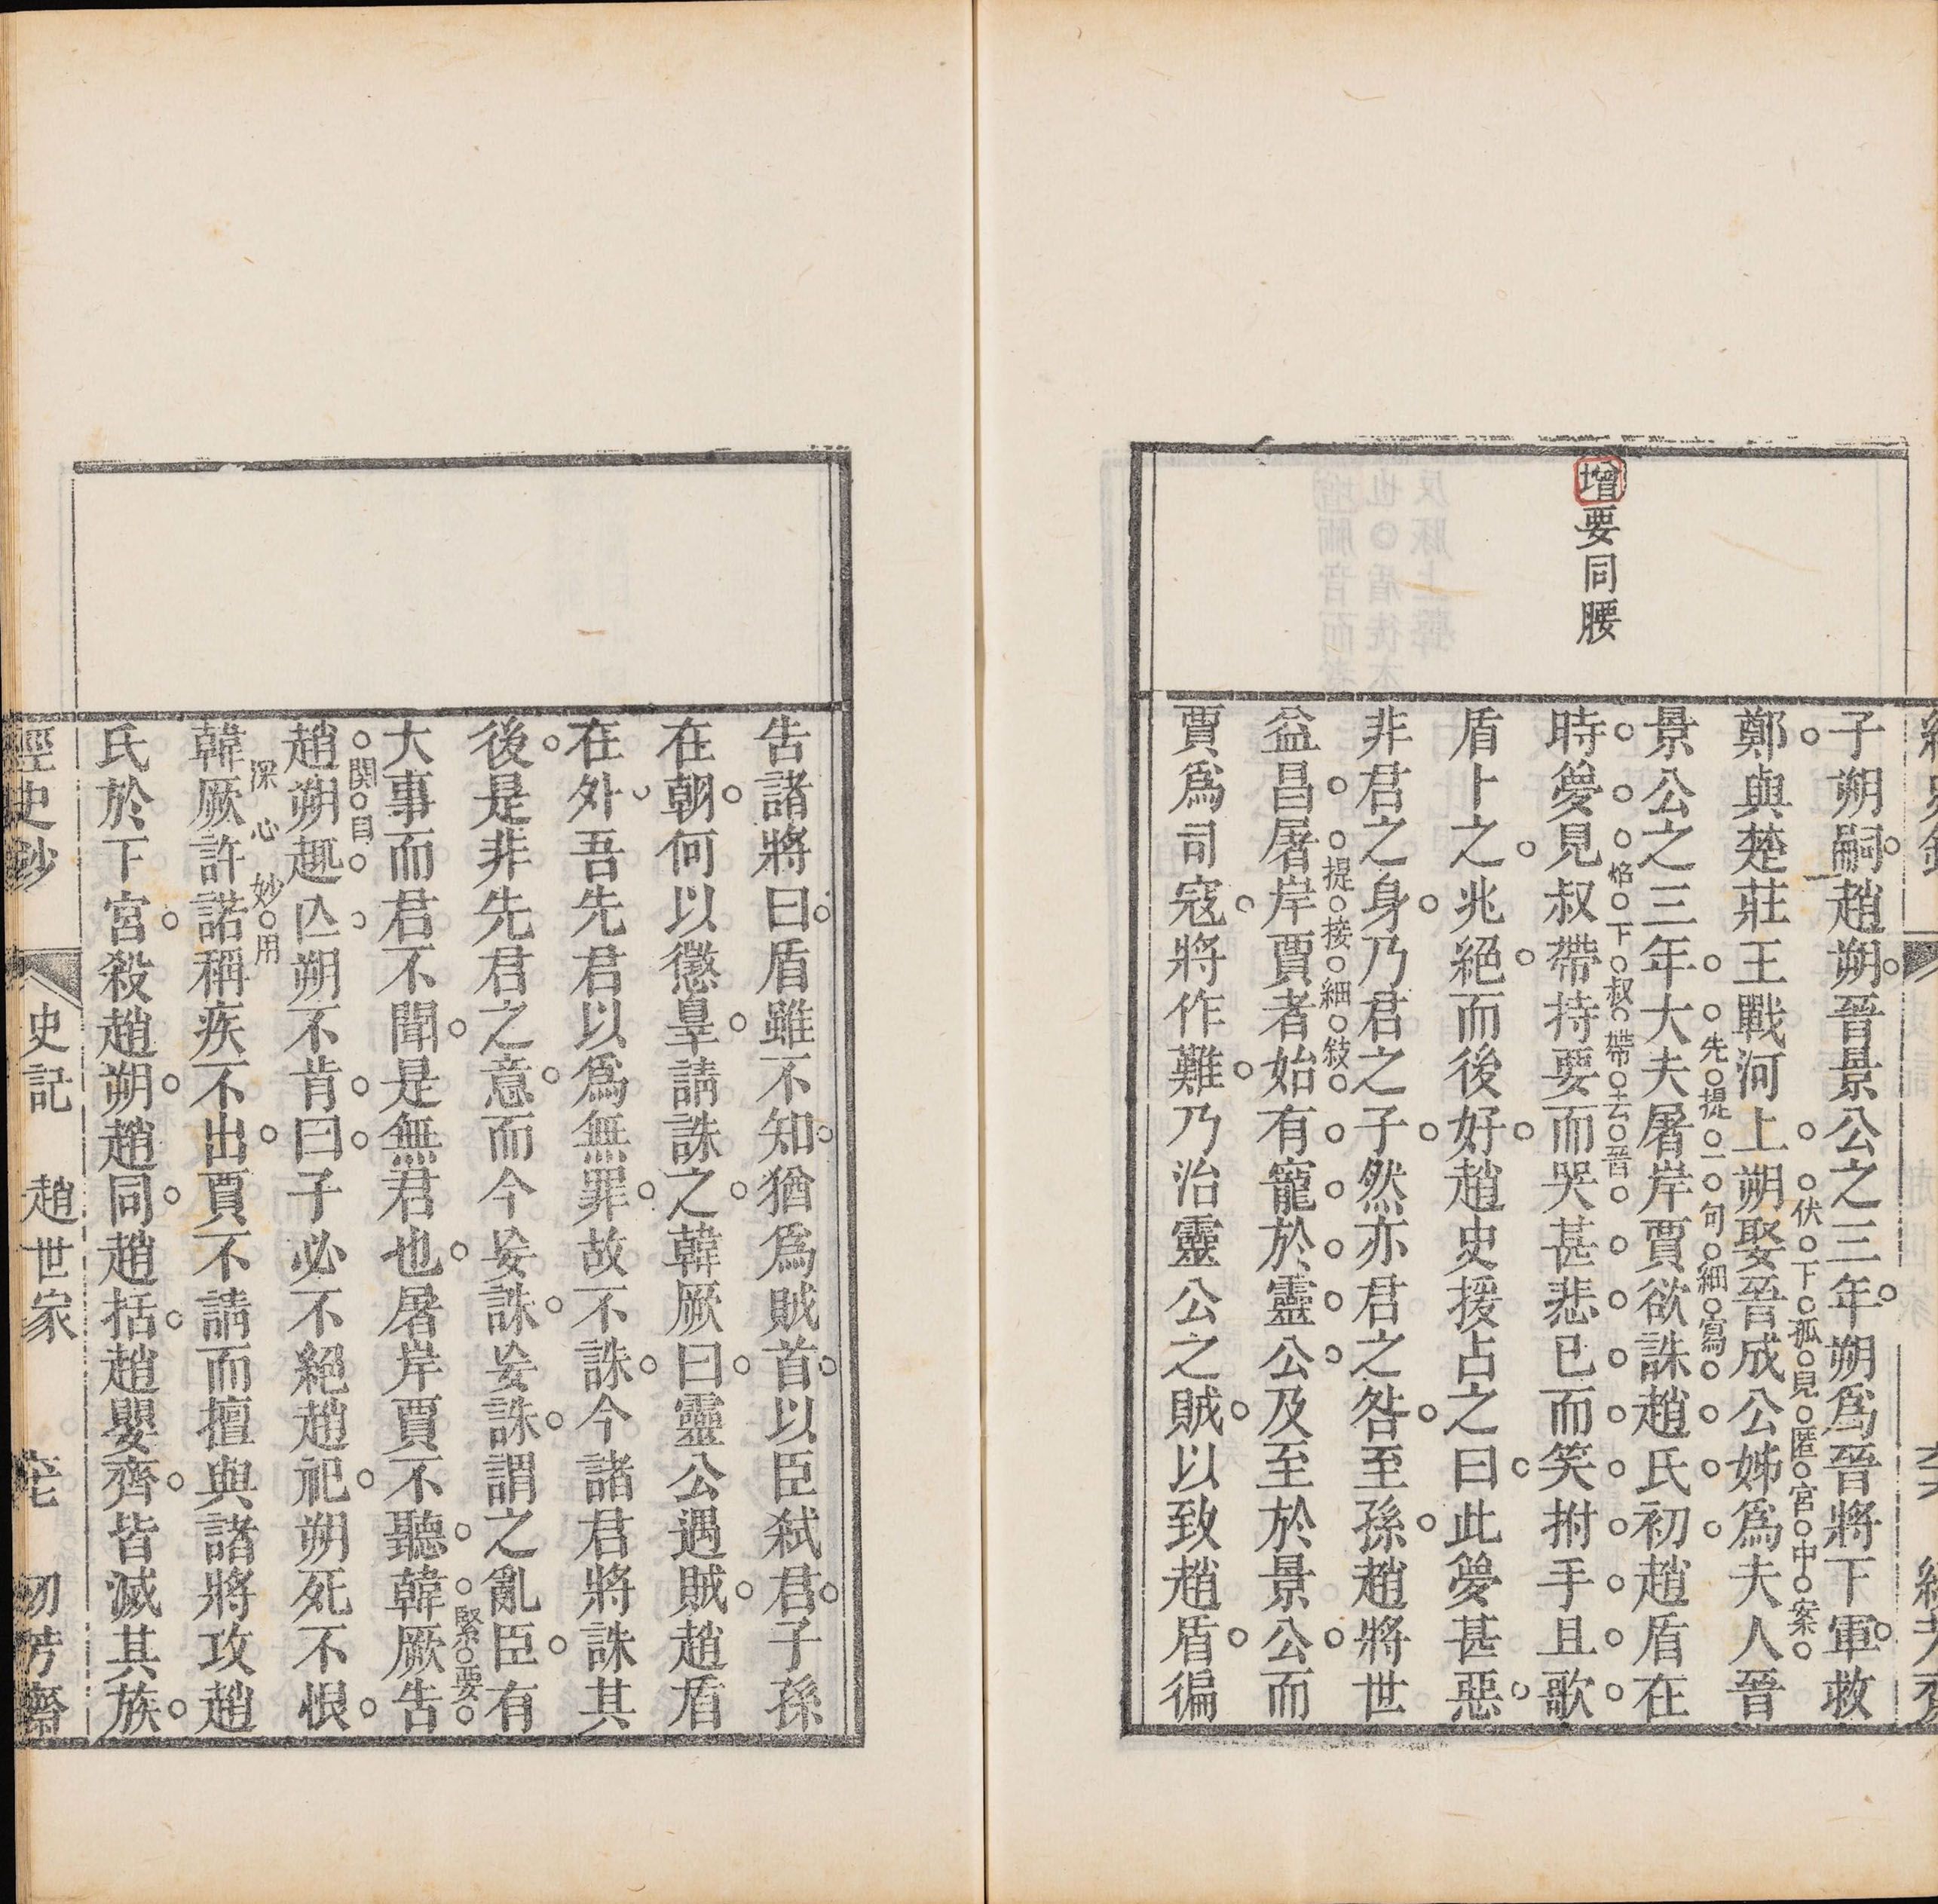 增要同腰
子朔嗣趙朔晉景公之三年朔爲晉將下軍救
鄭與楚莊王戰河上朔娶晉成公姊爲夫人晉
伏下孤見匿宮中案
景公之三年大夫屠岸賈欲誅趙氏初趙盾在
先提一句細寫
時夢見叔帶持要而哭甚悲已而笑拊手且歌
恰下叔帶去晉
盾卜之兆絕而後好趙史援占之曰此夢甚惡
非君之身乃君之子然亦君之咎至孫趙將世
益昌屠岸賈者始有寵於靈公及至於景公而
提接細敍
賈爲司寇將作難乃治靈公之賊以致趙盾徧
告諸將曰盾雖不知猶爲賊首以臣弒君子孫
在朝何以懲辠請誅之韓厥曰靈公遇賊趙盾
在外吾先君以爲無罪故不誅今諸君將誅其
後是非先君之意而今妄誅妄誅謂之亂臣有
大事而君不聞是無君也屠岸賈不聽韓厥告
緊要
趙朔趣亾朔不肯曰子必不絕趙祀朔死不恨
関目
韓厥許諾稱疾不出賈不請而擅與諸將攻趙
深心妙用
氏於下宮殺趙朔趙同趙括趙嬰齊皆滅其族
經史鈔 史記 趙世家